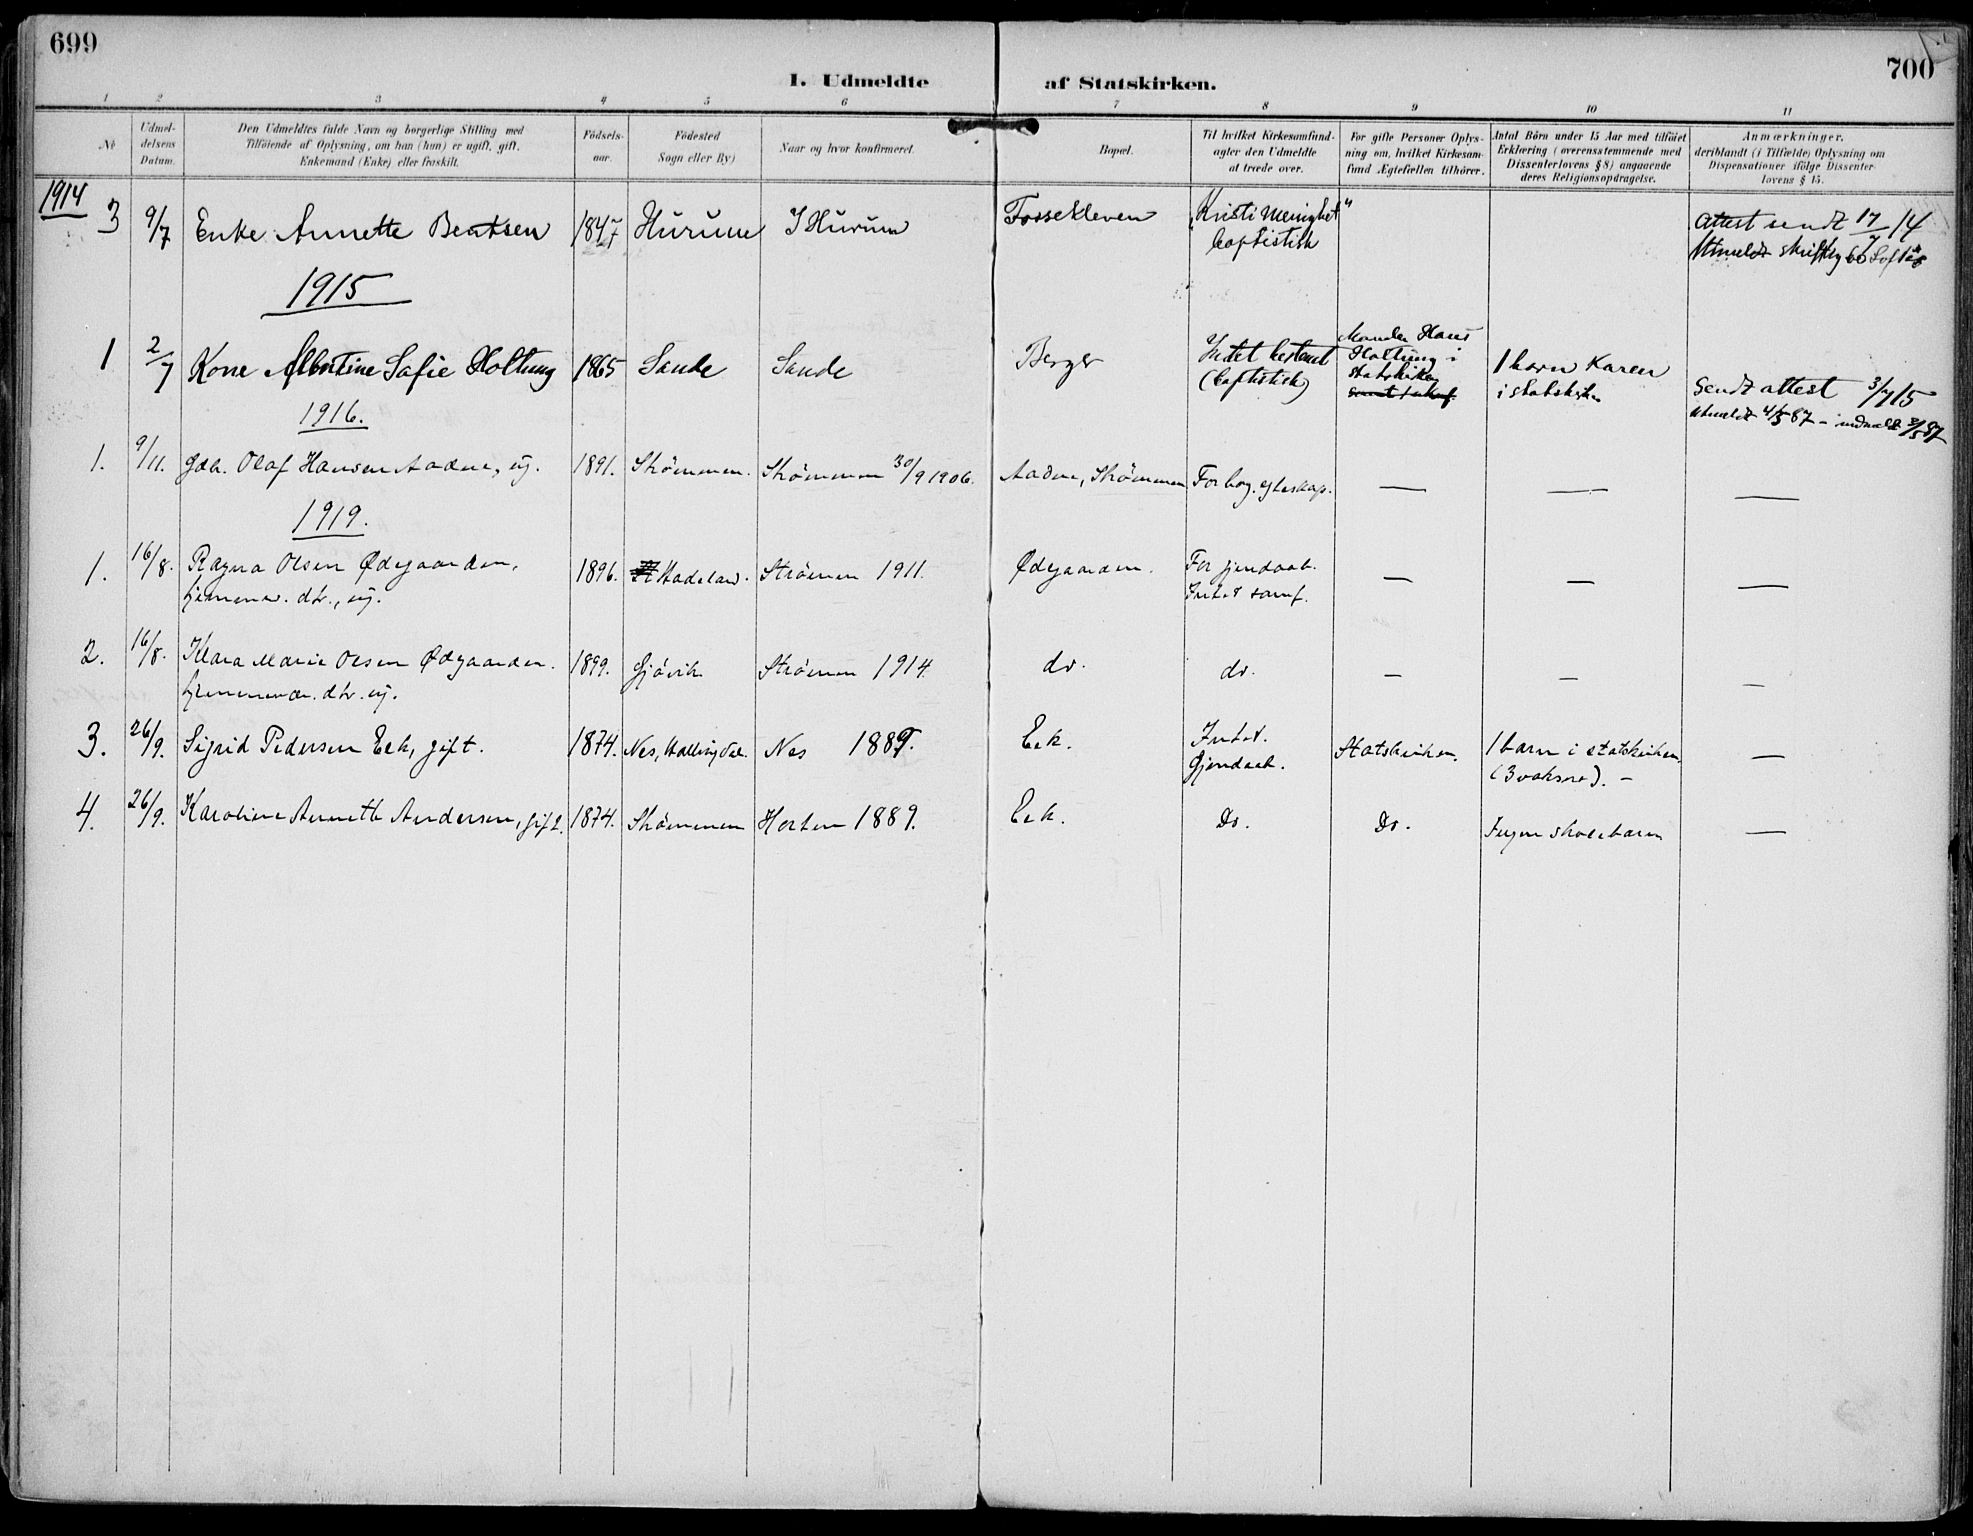 699
700
I. Udmeldte af Statskirken.
1 2 3 4 5 6 7 8 9 10 11
No
Udmeldelsens Datum.
Den Udmeldtes fulde Navn og borgerlige Stilling med
Tilføiende af Oplysning, om han (hun) er ugift, gift,
Enkemand (Enke) eller fraskilt.
Fødselsaar.
Fødested
Sogn eller By)
Naar og hvor konfirmeret.
Bopæl.
Til hvilket Kirkesamfund-
agter den Udmeldte
at træde over.
For gifte Personer Oplys-
ning om, hvilket Kirkesam-
fund Ægtefællen tilhører.
Antal Børn under 15 Aar med tilføiet
Erklæring (overensstemmende med
Dissenterlovens § 8) angaaende
deres Religionsopdragelse.
Anmærkninger,
deriblandt (i Tilfælde) Oplysning om
Dispensationer ifølge Dissenter
lovens § 15.
1914
3 9/7 Enke Annette Bentsen 1847 Hurum I Hurum Fossekleven "Kristi Menighet" baptistisk
Attest sendt 17/7 14
Utmeldt skriftlig
1915
1 2/7 Kone Albertine Safie Holtung 1865 Sande Sande Berger Intet bestemt (baptistisk)
Manden Hans
Holtung i
statskirken
1 barn Karen
i statskirken
Sendt attest 3/7 15
1916.
1. 9/11. gdb. Olaf Hansen Aadne, ug. 1891. Strømmen. Strømmen 30/9 1906. Aadne, Strømmen For borg. egteskap. — — —
1919.
1. 16/8. Ragna Olsen Ødegaarden, 1896. Hadeland. Strømmen 1911. Ødegaarden. For gjendaab. — — —
hjemmev. dtr., ug. Intet samf.
2. 16/8. Klara Marie Olsen Ødegaarden. 1899. Gjøvik Strømmen 1914. do. do. — — —
hjemmevær. dtr. ug.
3. 26/9. Sigrid Pedersen Eek, gift. 1874. Nes, Hallingdal. Nes 1889. Eek. Intet. Statskirken. 1 barn i statskirken. —
Gjendaab. (3 voksne). —
4. 26/9. Karoline Annette Andersen, gift. 1874. Strømmen Horten 1889. Eek. Do. Do. Ingen skolebarn —